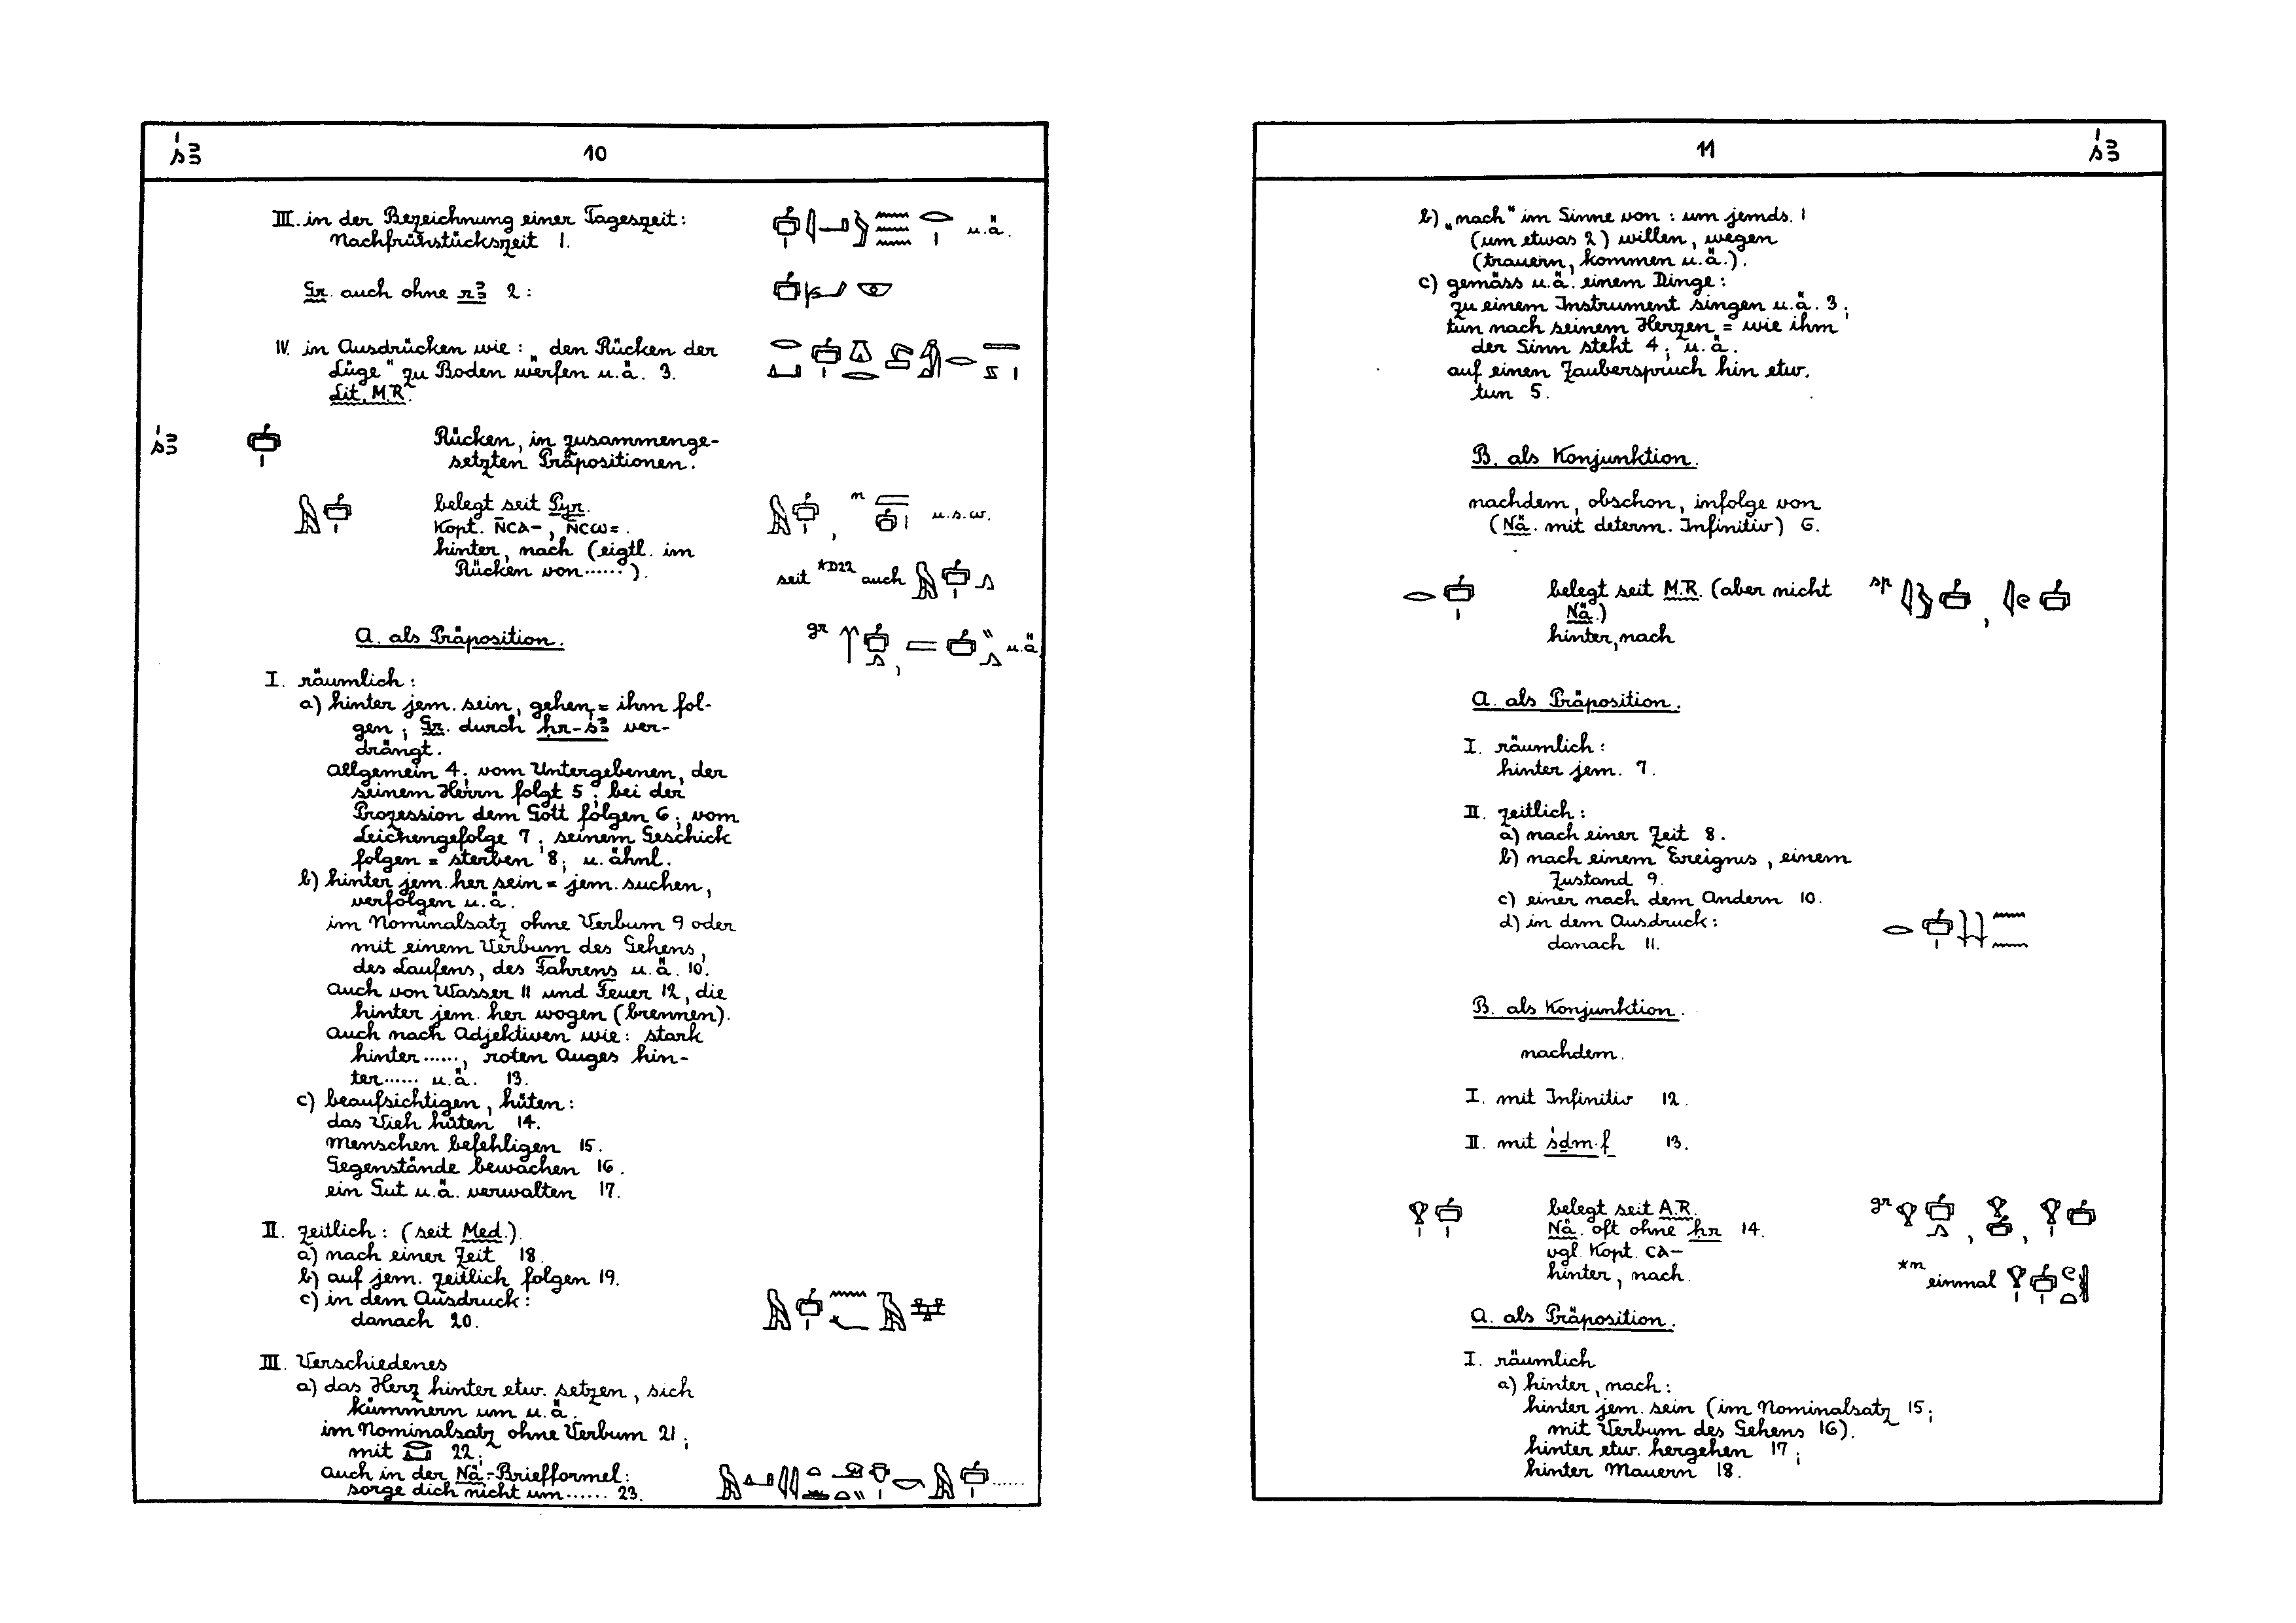 ś3 10
III. in der Bezeichnung einer Tageszeit:
Nachfrühstückszeit 1. u.ä.
Gr. auch ohne r3 2:
IV. in Ausdrücken wie: „den Rücken der
Lüge" zu Boden werfen u.ä. 3.
Lit. M.R.
ś3 Rücken, in zusammenge-
setzten Präpositionen.
belegt seit Pyr. n u.s.w.
Kopt. N̄CA-, N̄CW=.
hinter, nach (eigtl. im
Rücken von......). seit *D22 auch
A. als Präposition. gr u.ä.
I. räumlich:
a) hinter jem. sein, gehen = ihm fol-
gen; Gr. durch ḥr-ś3 ver-
drängt.
allgemein 4; vom Untergebenen, der
seinem Herrn folgt 5; bei der
Prozession dem Gott folgen 6; vom
Leichengefolge 7; seinem Geschick
folgen = sterben 8; u. ähnl.
b) hinter jem. her sein = jem. suchen,
verfolgen u.ä.
im Nominalsatz ohne Verbum 9 oder
mit einem Verbum des Gehens,
des Laufens, des Fahrens u.ä. 10.
auch von Wasser 11 und Feuer 12, die
hinter jem. her wogen (brennen).
auch nach Adjektiven wie: stark
hinter......, roten Auges hin-
ter...... u.ä. 13.
c) beaufsichtigen, hüten:
das Vieh hüten 14.
Menschen befehligen 15.
Gegenstände bewachen 16.
ein Gut u.ä. verwalten 17.
II. zeitlich: (seit Med.).
a) nach einer Zeit 18.
b) auf jem. zeitlich folgen 19.
c) in dem Ausdruck:
danach 20.
III. Verschiedenes
a) das Herz hinter etw. setzen, sich
kümmern um u.ä.
im Nominalsatz ohne Verbum 21;
mit 22;
auch in der Nä-Briefformel:
sorge dich nicht um...... 23. ......
11 ś3
b) „nach" im Sinne von: um jemds. 1
(um etwas 2) willen, wegen
(trauern, kommen u.ä.).
c) gemäss u.ä. einem Dinge:
zu einem Instrument singen u.ä. 3;
tun nach seinem Herzen = wie ihm
der Sinn steht 4; u.ä.
auf einen Zauberspruch hin etw.
tun 5.
B. als Konjunktion.
nachdem, obschon, infolge von
(Nä. mit determ. Infinitiv) 6.
belegt seit M.R. (aber nicht sp
Nä.)
hinter, nach
A. als Präposition.
I. räumlich:
hinter jem. 7.
II. zeitlich:
a) nach einer Zeit 8.
b) nach einem Ereignis, einem
Zustand 9.
c) einer nach dem Andern 10.
d) in dem Ausdruck:
danach 11.
B. als Konjunktion.
nachdem.
I. mit Infinitiv 12.
II. mit śdm.f 13.
belegt seit A.R. gr
Nä. oft ohne ḥr 14.
vgl. Kopt. CA-
hinter, nach. *n einmal
A. als Präposition.
I. räumlich
a) hinter, nach:
hinter jem. sein (im Nominalsatz 15;
mit Verbum des Gehens 16).
hinter etw. hergehen 17;
hinter Mauern 18.